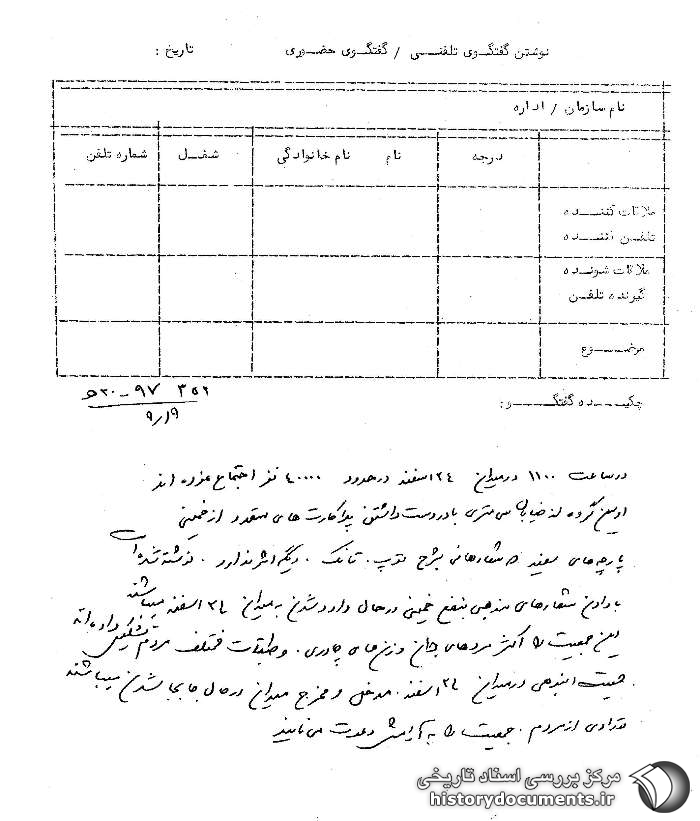 نوشتن گفتگوی تلفنی / گفتگوی حضوری تاریخ :
نام سازمان / اداره
درجه نام نام خانوادگی شغل شماره تلفن
ملاقات کننده
تلفن کننده
ملاقات شونده
گیرنده تلفن
موضوع
چکیده گفتگو :
۳۵۲
۹/۱۹
در ساعت ۱۱۰۰ در میدان ۲۴ اسفند در حدود ۴۰۰۰۰ نفر اجتماع نموده اند
این گروه از خیابان سی متری با در دست داشتن پلاکارت های متعدد از خمینی
پارچه های سفید که شعارهائی بشرح توپ . تانک . دیگر اثر ندارد . نوشته شده
با دادن شعارهای مذهبی بنفع خمینی در حال وارد شدن به میدان ۲۴ اسفند میباشند
این جمعیت را اکثر مردهای جوان و زن های چادری . و طبقات مختلف مردم تشکیل داده اند
جمعیت انبوهی در میدان ۲۴ اسفند . مدخل و مخرج میدان در حال جابجا شدن میباشند
تعدادی از مردم . جمعیت را به آرامش دعوت می نمایند
مرکز بررسی اسناد تاریخی
historydocuments.ir